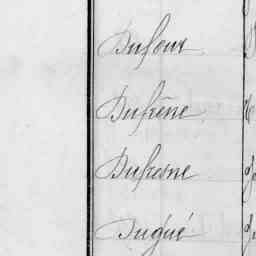 Dufour
Dufrêne
Dufresne
Dugué